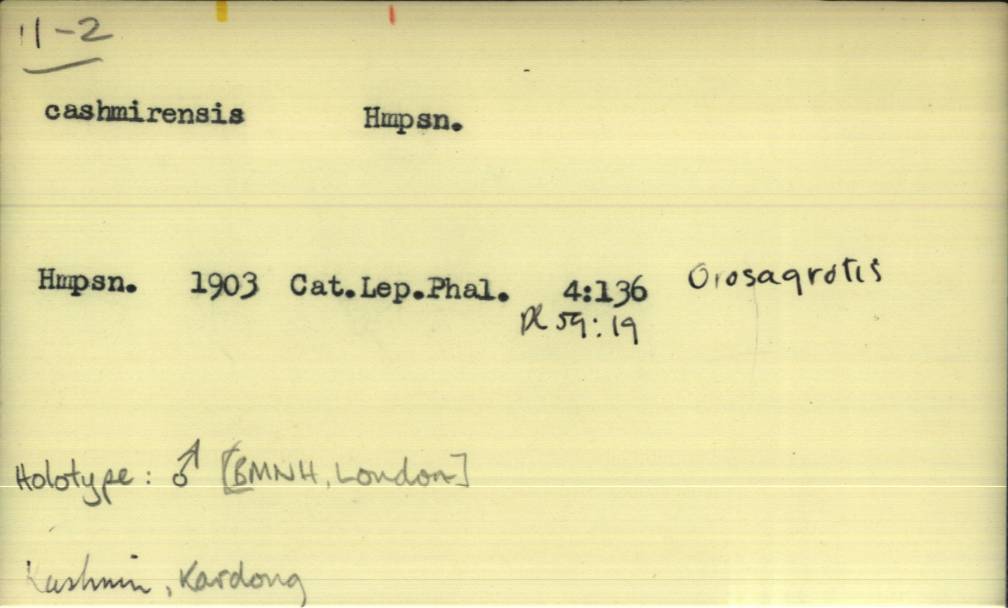 11-2
cashmirensis Hmpsn.
Hmpsn. 1903 Cat.Lep.Phal. 4:136 Orosagrotis
Pl 59:19
Holotype: ♂ [BMNH, London]
Kashmir, Kardong